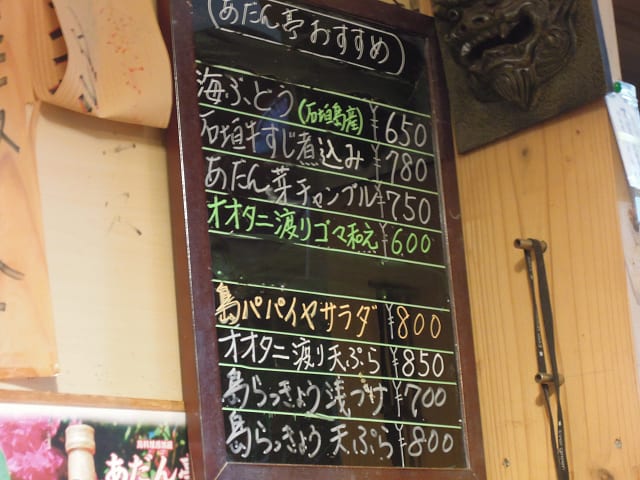 (あだん亭おすすめ)
海ぶどう(石垣島産) ¥650
石垣牛すじ煮込み ¥780
あだん芽チャンプル ¥750
オオタニ渡りゴマ和え ¥600
島パパイヤサラダ ¥800
オオタニ渡り天ぷら ¥850
島らっきょう浅づけ ¥700
島らっきょう天ぷら ¥800
あだん亭